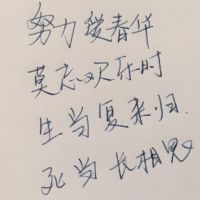 努力爱春华
莫忘欢乐时
生当复来归.
死当长相思